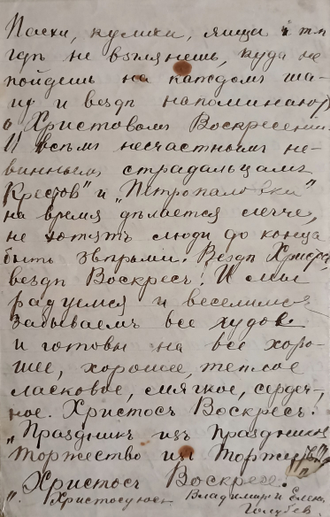 Пасхи, куличи, яйца и т п
гдѣ не взглянешь, куда не
пойдешь на каждомъ ша-
гу и вездѣ напоминают
о Христовомъ Воскресеніи
И всѣмъ несчастнымъ не-
виннымъ страдальцамъ
Крестов" и „Петропаловки"
на время дѣлается легче,
не хотятъ люди до конца
быть звѣрями. Вездѣ Христос,
вездѣ Воскресъ! И мы
радуемся и веселимся
забываемъ все худое
и готовы на все хоро-
шее, хорошее, теплое
ласковое, мягкое, сердеч-
ное. Христосъ Воскресъ!
„Праздникъ изъ Праздниковъ
Торжество изъ Торжествъ"
Христосъ Воскресе!
Христосуюся Владимиръ и Елена
Голубев